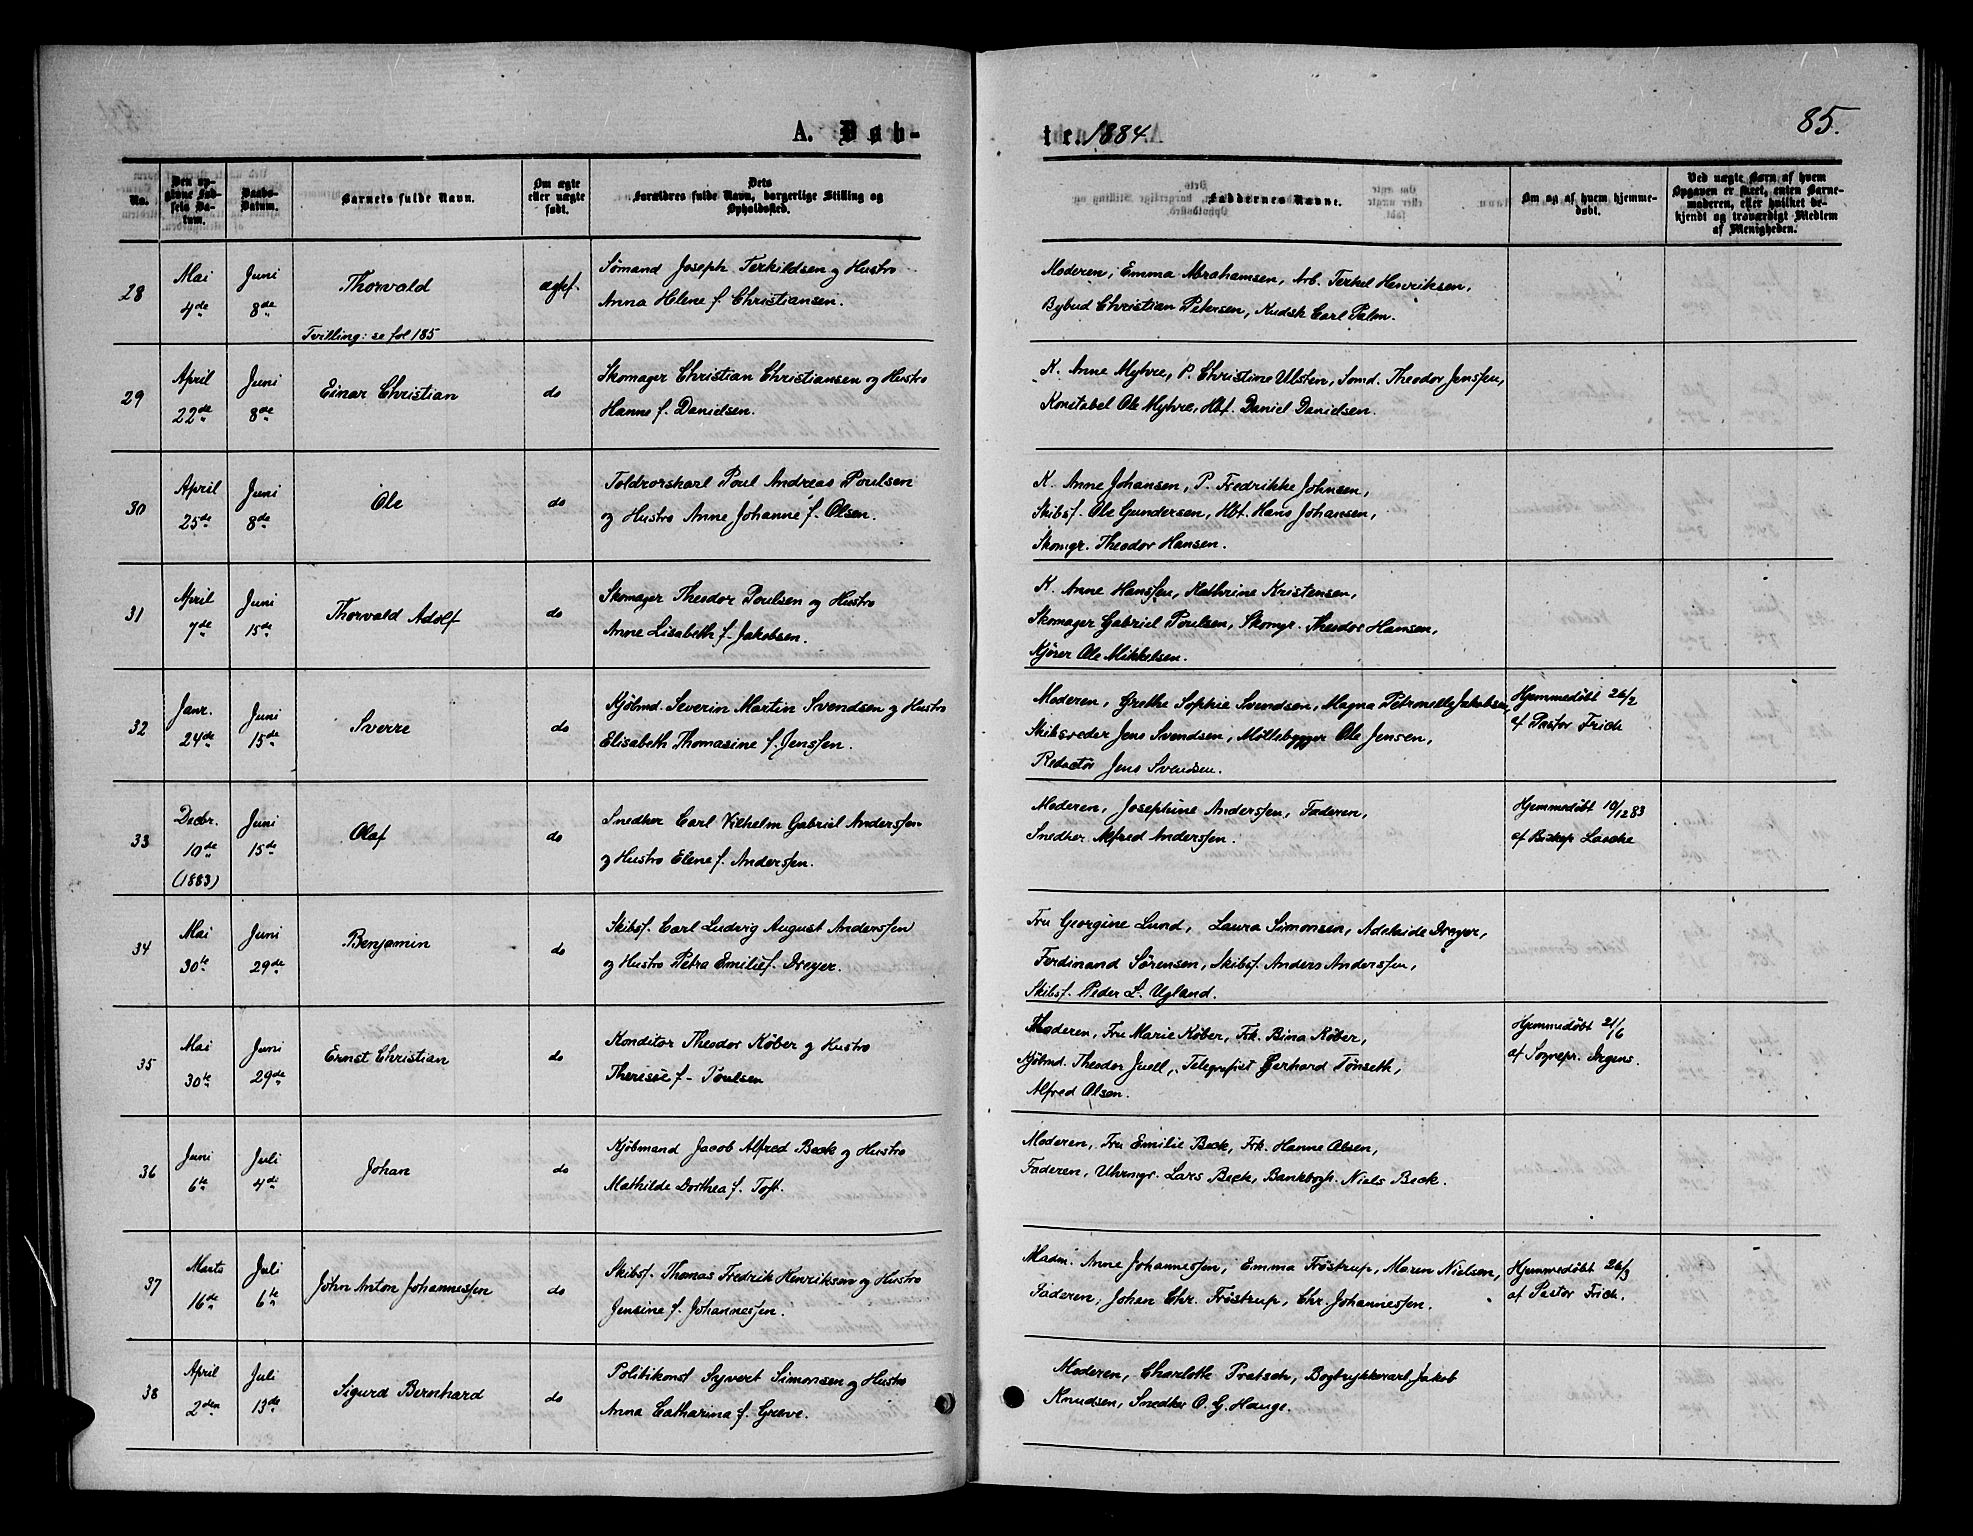 85.
A. Døb-
te. 1884
No.
Den op-
givne Fød-
sels Da-
tum.
Daabs-
Datum.
Barnets fulde Navn.
Om ægte
eller uægte
født.
Dets
Forældres fulde Navn, borgerlige Stilling og
Opholdssted.
Faddernes Navne.
Om og af hvem hjemme-
døbt.
Ved uægte Børn af hvem
Opgaven er skeet, enten Barne-
moderen, eller hvilket be-
kjendt og troværdigt Medlem
af Menigheden.
28
Mai
4de
Juni
8de
Thorvald
Tvilling: se fol 185
ægtef.
Sømand Joseph Terkildsen og Hustro
Anna Helene f. Christiansen.
Moderen, Emma Abrahamsen, Arb. Terkel Henriksen,
Bybud Christian Petersen, Kudsk Carl Palm.
29
April
22de
Juni
8de
Einar Christian
do
Skomager Christian Christiansen og Hustro
Hanne f. Danielsen.
K. Anne Myhre, P. Christine Ulsten, Sømd. Theodor Jenssen,
Konstabel Ole Myhre, Hbf. Daniel Danielsen.
30
April
25de
Juni
8de
Ole
do
Toldrorskarl Poul Andreas Poulsen
og Hustro Anne Johanne f. Olsen.
K. Anne Johansen, P. Fredrikke Johnsen,
Skibsf. Ole Gundersen, Hbf. Hans Johansen,
Skomgr. Theodor Hansen.
31
April
7de
Juni
15de
Thorvald Adolf
do
Skomager Theodor Poulsen og Hustro
Anne Lisabeth f. Jakobsen.
K. Anne Hanssen, Kathrine Kristensen,
Skomager Gabriel Poulsen, Skomgr. Theodor Hansen,
Kjører Ole Mikkelsen.
32
Janr.
24de
Juni
15de
Sverre
do
Kjøbmd. Severin Martin Svendsen og Hustro
Elisabeth Thomasine f. Jenssen.
Moderen, Grethe Sophie Svendsen, Magna Petronelle Jakobsen,
Skibsreder Jens Svendsen, Møllebygger Ole Jensen,
Redactør Jens Svendsen.
Hjemmedøbt 26/2
af Pastor Frich
33
Decbr.
10de
(1883)
Juni
15de
Olaf
do
Snedker Carl Vilhelm Gabriel Anderssen
og Hustro Elene f. Anderssen.
Moderen, Josephine Anderssen, Faderen,
Snedker Alfred Anderssen.
Hjemmedøbt 10/12 83
af Biskop Laache
34
Mai
30te
Juni
29de
Benjamin
do
Skibsf. Carl Ludvig August Anderssen
og Hustro Petra Emilie f. Dreyer.
Fru Georgine Lund, Laura Simonsen, Adelaide Dreyer,
Ferdinand Sørensen, Skibsf. Anders Anderssen,
Skibsf. Peder L. Ugland.
35
Mai
30te
Juni
29de
Ernst Christian
do
Konditor Theodor Køber og Hustro
Therese f. Poulsen
Moderen, Fru Marie Køber, Frk. Bina Køber,
Kjøbmd. Theodor Juell, Telegrafist Gerhard Tønseth,
Alfred Olsen.
Hjemmedøbt 21/6
af Sognepr. Irgens.
36
Juni
6te
Juli
4de
Johan
do
Kjøbmand Jacob Alfred Beck og Hustro
Mathilde Dorthea f. Toft.
Moderen, Fru Emilie Beck, Frk. Hanne Olsen,
Faderen, Uhrmgr. Lars Beck, Bankbogh. Niels Beck.
37
Marts
16de
Juli
6te
John Anton Johannessen
do
Skibsf. Thomas Fredrik Henriksen og Hustro
Jensine f. Johannessen.
Madm. Anne Johannessen, Emma Frøstrup, Maren Nielsen,
Faderen, Johan Chr. Frøstrup, Chr. Johannessen.
Hjemmedøbt 26/3
af Pastor Frich.
38
April
2den
Juli
13de
Sigurd Bernhard
do
Politikonst Syvert Simonsen og Hustro
Anna Catharina f. Greve.
Moderen, Charlotte Pratsch, Bogtrykkerarb Jakob
Knudsen, Snedker O. G. Hauge.